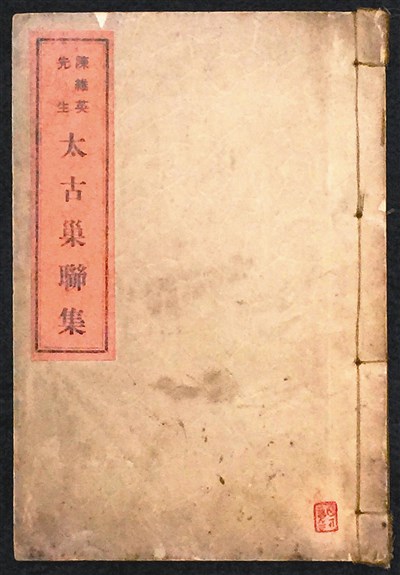 陳維英
先生
太古巢聯集